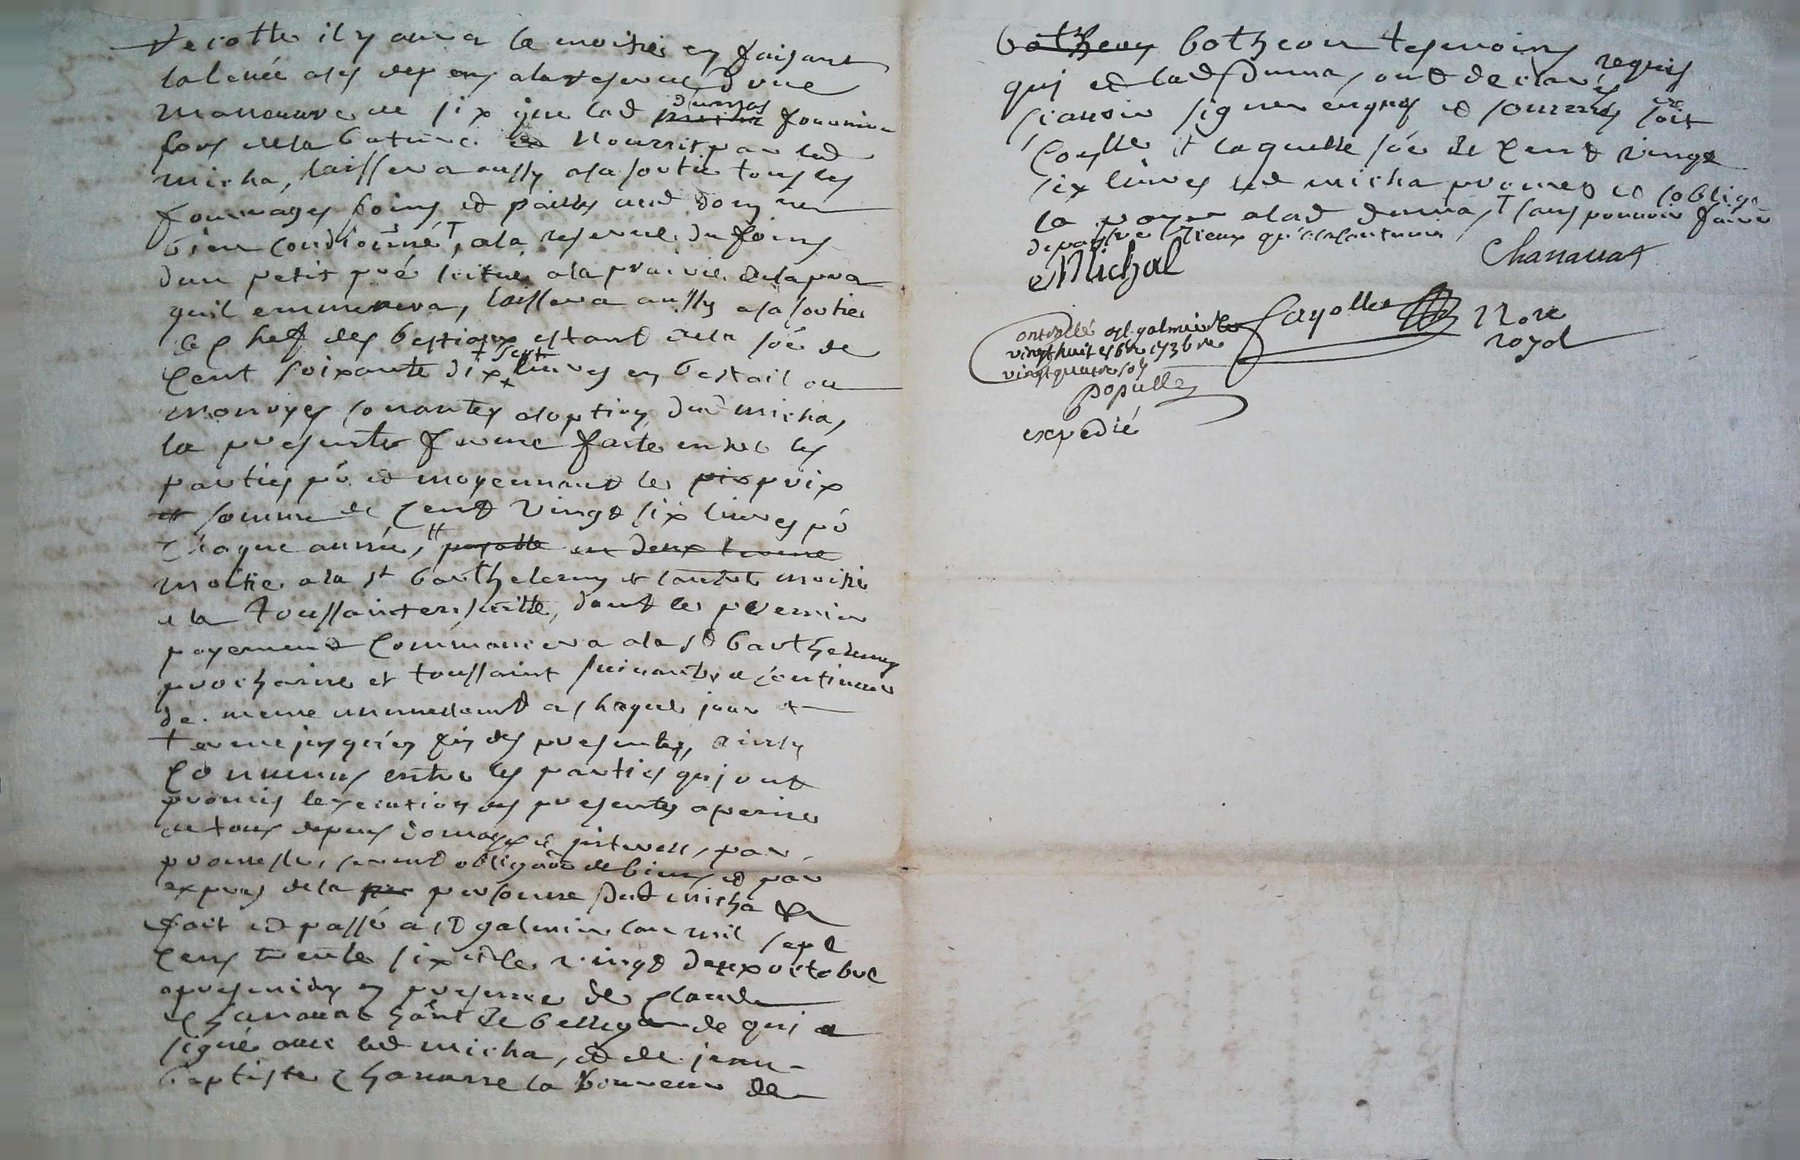 recolte il y aura la moitié en faisant
la levée
manouvre de six que lad dumas fournira
lors de la nourrit par led
micha, laissera aussy a sa sortie tous les
fourrages foins et pailles
bien conditionné, a la reserve du foins
dun petit pré scitué a la prairie de la
quil emmenera, laissera aussy a sa sortie
le chef des bestiaux estant de la soê de
cent soixante dix sept livres en bestail ou
monoyes sonantes a loption dud micha,
la presente ferme faite entre les
parties pô et moyennant le pix prix
et somme de cent vingt six livres pô
chaque année, payable en deux terme
moitié a la st barthelemy et lautre moitié
a la toussaint ensuitte, dont le premier
payement commancera a la st barthelemy
prochaine et toussaint suivante a continuer
de meme annuellement a chaque jour et
terme jusqu'en fin des presentes, ainsy
convenus entre les parties qui ont
promis lexecution des presentes a peine
de tous depens domages et interests, par
promesse, serment obligãon de biens et par
expres de la per personne dud micha
fait et passé a st galmier lan mil sept
cens trente six et le vingt deux octobre
apres midy en presence de claude
chanavat hãnt de bellegarde qui a
signé avec led micha, et de jean
baptiste chanavre laboureur de
botheon botheon tesmoins
qui et lad dumas, ont declaré requis
scavoir signer enquis et sommés soit
conlle et laquelle soê de cent vingt
six livres led micha promet et soblige
la payer a lad dumas sans pouvoir faire
depaistre lieux qu'a la coutume
Michal
Chanavat
ontrollé a st galmier le
vingt huit 8bre 1736 Reçu
vingt quatre sols
populle
Fayolle
Nore
royal
expedié